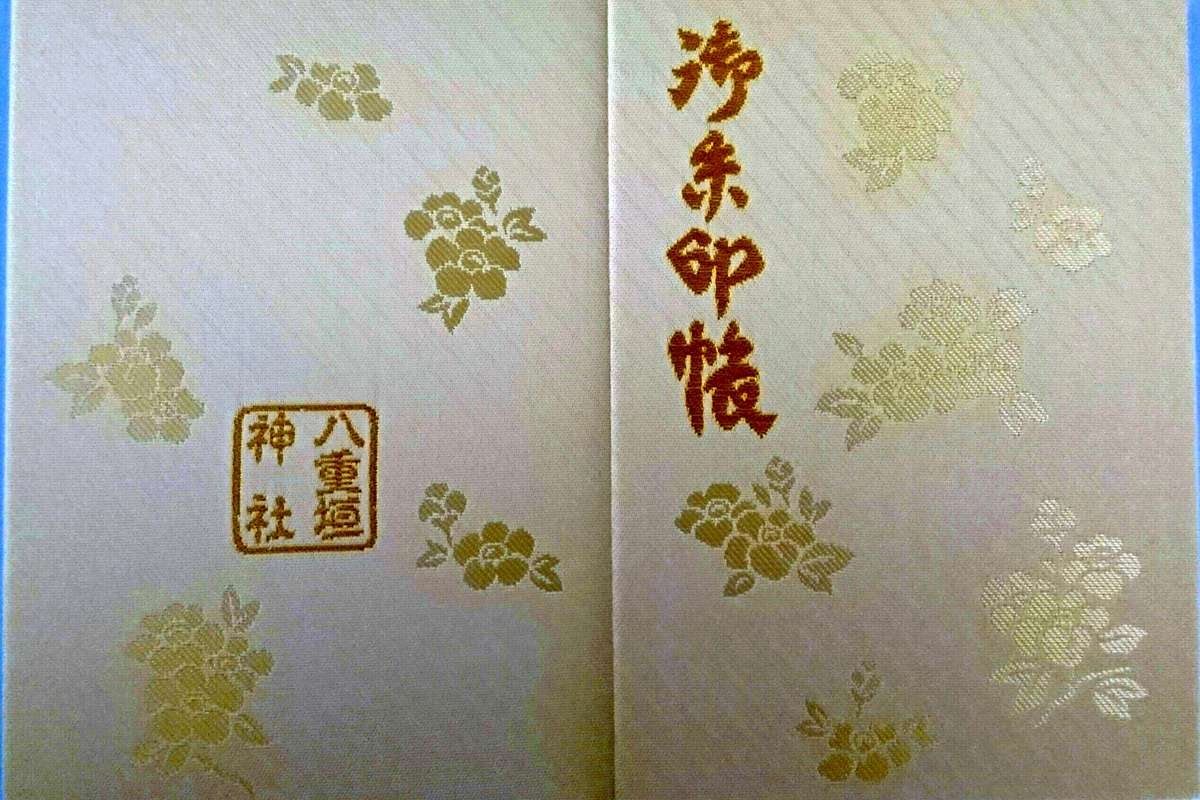 御朱印帳
八重垣
神社